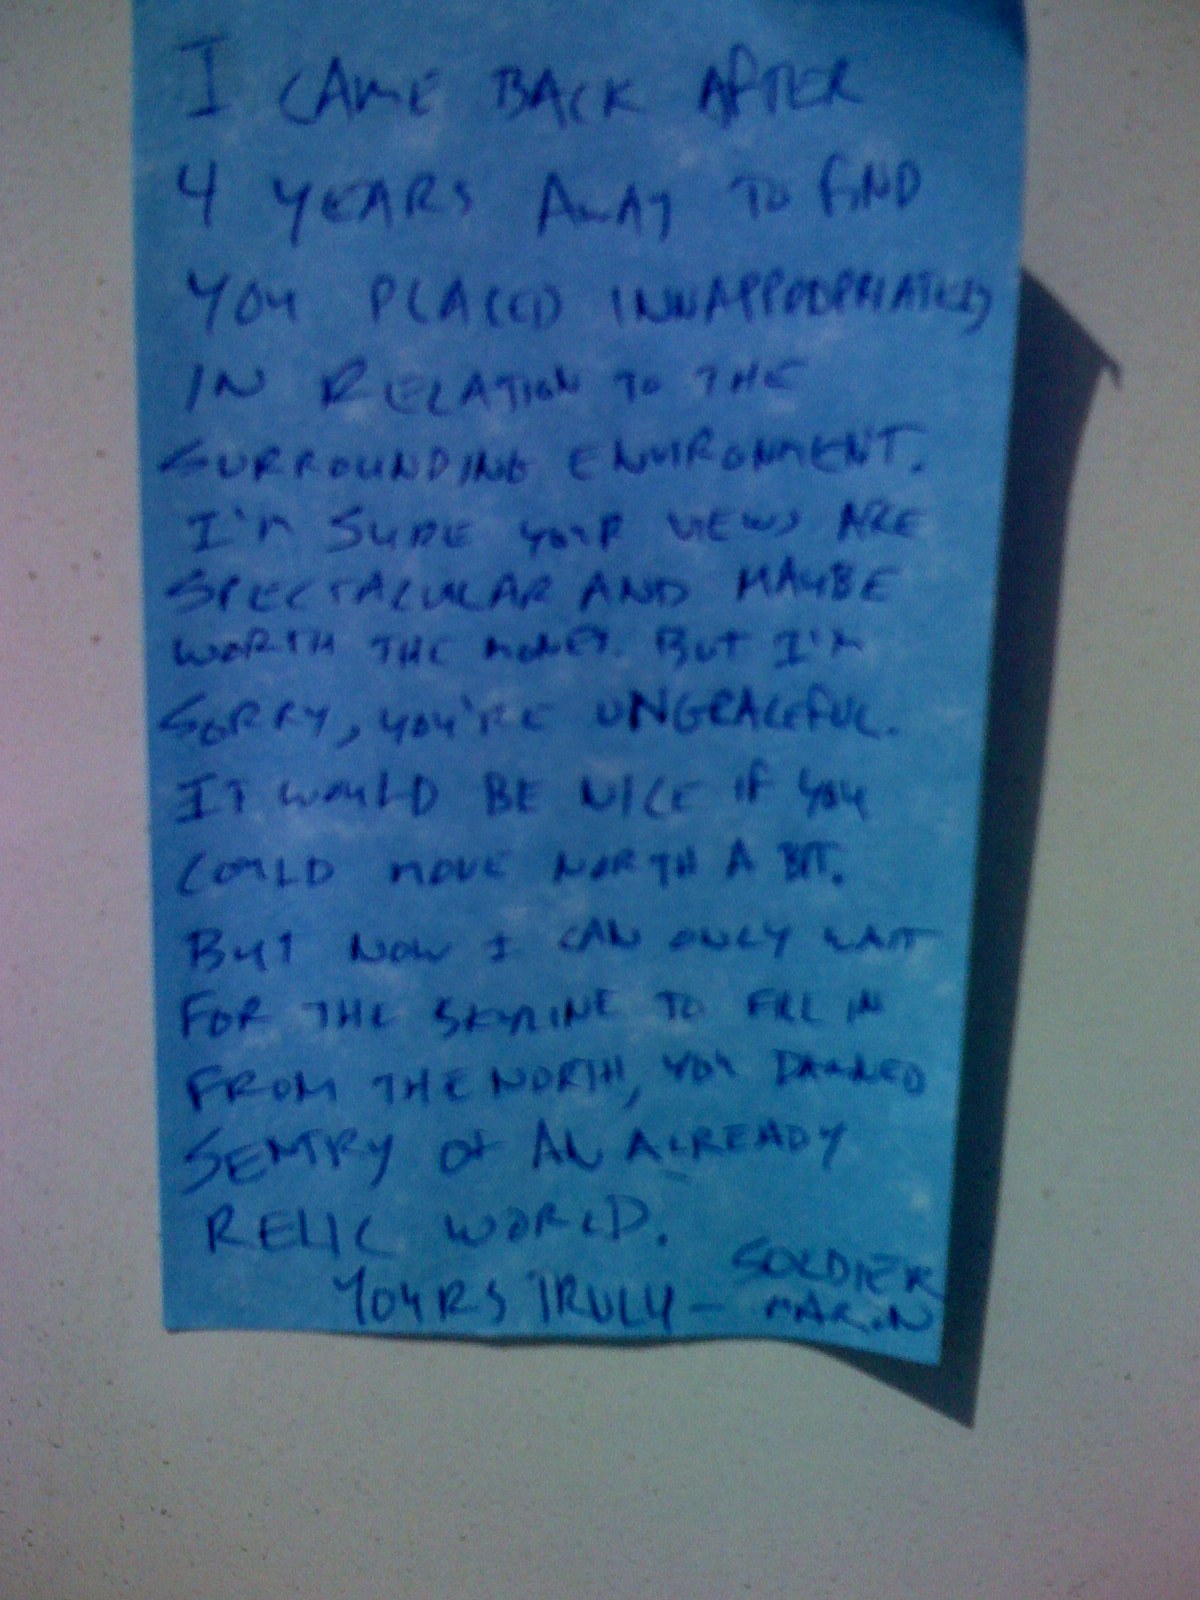 I CAME BACK AFTER
4 YEARS AWAY TO FIND
YOU PLACED INNAPPROPRIATELY
IN RELATION TO THE
SURROUNDING ENVIRONMENT.
I'M SURE YOUR VIEWS ARE
SPECTACULAR AND MAYBE
WORTH THE MONEY. BUT I'M
SORRY, YOU'RE UNGRACEFUL.
IT WOULD BE NICE IF YOU
COULD MOVE NORTH A BIT.
BUT NOW I CAN ONLY WAIT
FOR THE SKYLINE TO FILL IN
FROM THE NORTH, YOU DAMNED
SENTRY OF AN ALREADY
RELIC WORLD.
YOURS TRULY - SOLDIER
MARIN